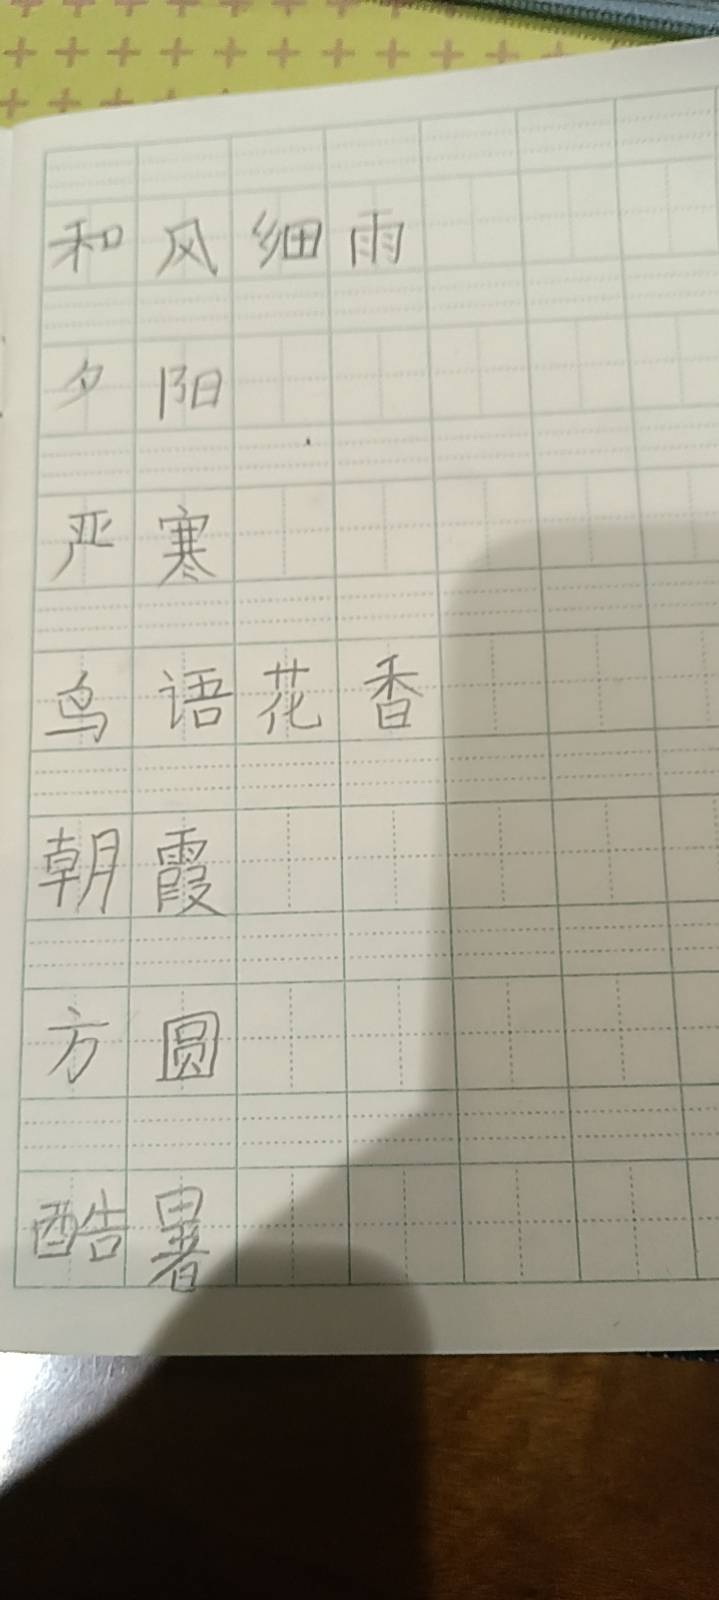 和风细雨
夕阳
严寒
鸟语花香
朝霞
方圆
酷暑